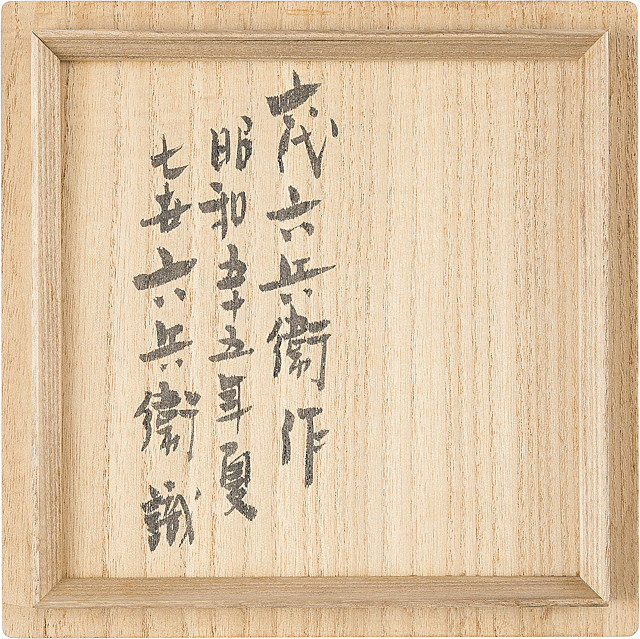 六代六兵衛作
昭和五十五年夏
七世六兵衛識